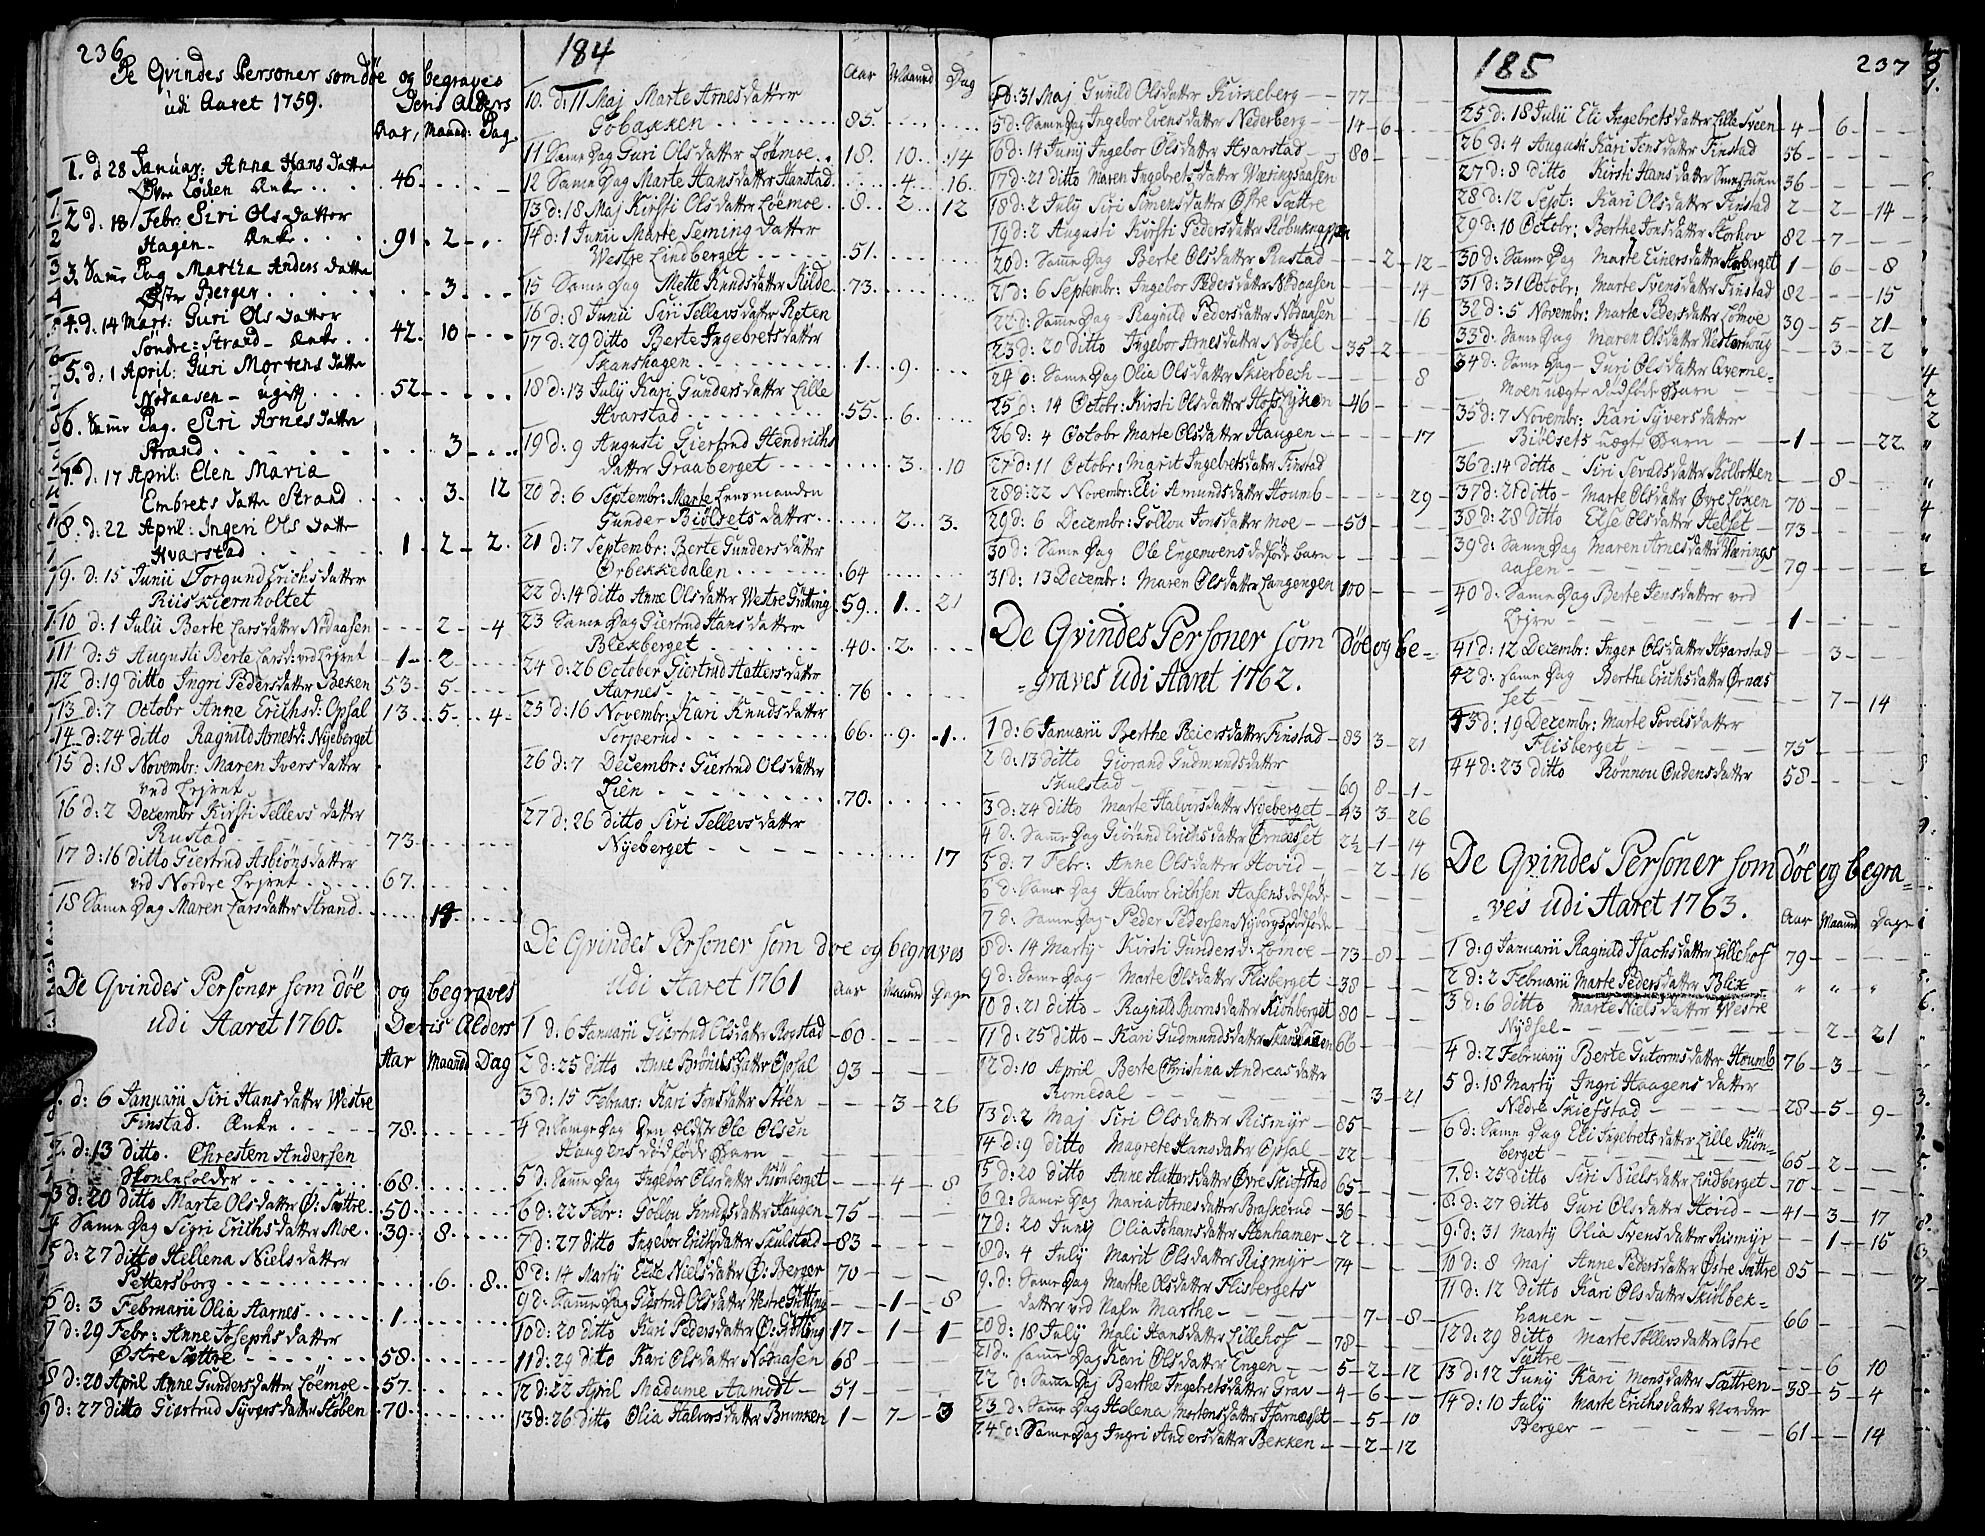 236
De Qvindes Personer som døe og begraves
udi Aaret 1759. Deris Alders
Aar, Maaned: Dag.
1. d 28 Januar: Anna Hans Datter
Øvre Løken Enke 46
2 d. 18 Febr: Siri Ols Datter
Hagen Enke 91 2
3. Samme Dag Martha Anders datter
Østre Berger 3
4. d. 14 Mart: Guri Ols Datter
Søndre: Strand Enke 42 10
5. d. 1 April: Guri Mortens datter
Nødaasen ugift 52
6. Samme Dag. Siri Arnes datter
Strand 3
7. d. 17 April: Elen Maria
Embrets datter Strand 3 12
8. d. 22 April: Ingeri Ols datter
Hvarstad 1 2 2
9. d. 15 Junii Torgund Erichs datter
Riiskiernholtet
10 d: 1 Julii Berte Lars datter Nødaasen 2 4
11 d: 5 Augusti Berte Larsd: ved Lejret 1 2
12 d: 19 ditto Ingri Peders datter Beken 53 5
13 d: 7 Octobr Anne Erichsd: Opsal 13 5 4
14 d: 24 ditto Ragnild Arnesd: Nyeberget
15 d: 18 Novembr: Maren Ivers datter
ved Lejret
16 d: 2 Decembr Kirsti Tellevs datter
Rustad 73
17 d: 16 ditto Giertrud Asbiøns datter
ved Nordre Lejret 67
18 Same Dag Maren Lars datter Strand 14
De Qvindes Personer som døe og begraves
udi Aaret 1760. Deris Alders
Aar Maaned Dag
1. d: 6 Januarii Siri Hans datter Westre
Finstad. Enke 78
2. d: 13 ditto. Chresten Andersen
Skoleholder 68
3 d: 20 ditto Marte Ols datter Ø: Sættre 50
4 Same Dag Sigri Erichs datter Moe 39 8
5 d: 27 ditto Hellena Niels datter
Pettersborg 6 8
6 d: 3 Februarii Olia Aarnes 1
7 d: 29 Febr: Anne Josephs datter
Østre Sættre 58
8 d: 20 April Anne Gunders datter Løemoe 57
9 d: 27 ditto Giertrud Syvers datter Støben 70
184
Aar Maaned Dag
10. d: 11 Maj Marte Arnes datter
Gobakken 85
11 Same Dag Guri Ols datter Løemoe 18 10 14
12 Same Dag Marte Hans datter Hanstad 4 16
13 d: 18 Maj Kirsti Ols datter Løemoe 8 2 12
14 d: 1 Junii Marte Seming datter
Westre Lindberget 51
15 Same Dag Mette Knuds datter Kilde 73
16 d: 8 Junii Siri Tellevs datter Reten
17 d: 29 ditto Berte Ingebrets datter
Skanshagen 1 9
18 d: 13 July Kari Gunders datter Lille
Hvarstad 55 6
19 d: 9 Augusti Giertrud Hendrichs
datter Graaberget 3 10
20 d: 6 Septembr: Marte Lensmanden
Gunder Biølsets datter 2 3
21 d: 7 Septembr: Berte Gunders datter
Ørbekkedalen 64
22 d: 14 ditto Anne Ols datter Westre Grøtting 59 1 21
23 Same Dag Giertrud Hans datter
Blekberget 40 2
24 d: 26 October Giertrud Halters datter
Aarnes 76
25 d: 16 Novembr: Kari Knuds datter
Sorperud 66 9 1
26 d: 7 Decembr: Giertrud Ols datter
Lien 70
27 d: 26 ditto Siri Tellevs datter
Nyeberget 17
De Qvindes Personer som døe og begraves
udi Aaret 1761 Aar Maaned Dage
1 d. 6 Januarii Giertrud Ols datter Rogstad 60
2 d: 25 ditto Anne Brønils datter Opsal 93
3 d: 15 Februar: Kari Jons datter Støen 3 26
4 d: Samme Dag Den ældste Ole Olsen
Haugens dødføde Barn
5 d: Samme Dag Ingebor Ols datter Kiønberget 4 8
6 d: 22 Febr: Gollou Knuds datter Haugen 75
7 d: 27 ditto Ingebor Erichs datter Skulstad 83
8 d: 14 Martj Elie Niels datter Ø: Berger 70
9 d: Samme Dag Giertrud Ols datter Westre Grøtting 1 8
10 d: 20 ditto Kari Peders datter Ø: Grøtting 17 1 1
11 d: 29 ditto Kari Ols datter Nødaasen 68
12 d: 22 April Madame Aamodt 51
13 d: 26 ditto Olia Halvors datter Brunken 1 7 3
4 d: 31 Maj Gunild Ols datter Kirkeberg 77
5 d: Same Dag Ingebor Evens datter Nederberg 14 6
6 d: 14 Junij Ingebor Ols datter Hvarstad 80
17 d: 21 ditto Maren Ingebrets datter Væringsaasen
18 d: 2 July Siri Simens datter Østre Sættre
19 d: 2 Augusti Kirsti Peders datter Robuknappen
20 d: Samme Dag Berte Ols datter Rustad 2 12
21 d: 6 Septembr: Ingebor Peders datter Nødaasen 14
22 d: Samme Dag Ragnild Peders datter Nødaasen 16
23 d: 20 ditto Ingebor Arnes datter Nødsel 35 2
24 d: Same Dag Olia Ols datter Skierbech 8
25 d: 14 Octobr: Kirsti Ols datter Hofs Lyken 46
26 d: 4 Octobr Marte Ols datter Haugen 17
27 d: 11 Octobr: Marit Ingebrets datter Finstad
28 d: 22 Novembr: Eli Amunds datter Houmb 29
29 d: 6 Decembr: Gollou Jons datter Moe 50
30 d: Same Dag Ole Engemoens dødføde Barn
31 d: 13 Decembr: Maren Ols datter Langengen 100
De Qvindes Personer som døe og be=
=graves udi Aaret 1762.
1 d: 6 Januarii Berthe Reiers datter Finstad 83 3 21
2 d: 13 ditto Giorand Gudmunds datter
Skulstad 69 8 1
3 d: 24 ditto Marte Halvors datter Nyeberget 43 3 26
4 d. Samme Dag Giørand Erichs datter Ørnæsset 2½ 1 14
5 d: 7 Febr: Anne Ols datter Hovid 2 16
6 d. Same Dag Halvor Erichsen Aasens dødføde
7 d. Samme Dag Peder Pedersens Nybergs dødføde
8 d: 14 Martj Kirsti Gunders d: Lømoe 73 8
9 d: Same Dag Marte Ols datter Flisberget 38
10 d: 21 ditto Ragnild Biørns datter Kiønberget 80
11 d: 25 ditto Kari Gudmunds datter Skanshauen 66
12 d: 10 April Berte Christina Andreas datter
Romedal 3 21
13 d: 2 Maj Siri Ols datter Rismyr 85
14 d: 9 ditto Magrete Hans datter Opsal 22
15 d: 20 ditto Anne Halters datter Øvre Skiefstad 65
6 d: Same Dag Maria Arnes datter Braskerud 36
17 d: 20 Junij Olia Johans datter Stenhamer 2
18 d: 4 July Marit Ols datter Rismyr 74
9. d: Same Dag Marthe Ols datter Flisbergets
datter ved Nafn Marthe 7 8
20 d: 18 July Mali Hans datter Lillehof 78
21 d: Samme Dag Kari Ols datter Engen 5 2 12
22 d: Samme Dag Berthe Ingebrets datter Grav 4 6
23 d: Same Dag Helena Mortens datter Harnæset 5 10
24 d: Same Dag Ingri Anders datter Bekken 2 12
185
237
25 d: 18 Julii Eli Ingebrets datter Lille Sveen 4 6
26 d: 4 Augusti Kari Jens datter Finstad 56
27 d: 8 ditto Kirsti Hans datter 36
28 d: 12 Sept: Kari Ols datter Finstad 2 2 14
29 d: 10 Octobr: Berthe Jons datter Storhov 82 7
30 d: Same Dag Marte Einers datter 1 6 8
31 d: 31 Octobr: Marte Svens datter Finstad 82 15
32 d: 5 Novembr: Marte Peders datter Lømoe 39 5 21
33 d: Same Dag Maren Ols datter Vestermoug 3 2
34 d: Same Dag Guri Ols datter Qverne=
Moen uægte dødføde Barn
35 d: 7 Novembr: Kari Syvers datter
Biølsets uægte Barn 1 22
36 d: 14 ditto Siri Sevalds datter Kolbotten 8
37 d: 21 ditto Marte Ols datter Øvre Løken 70
38 d: 28 ditto Else Ols datter Helset 73
39 d: Same Dag Maren Arnes datter Værings
aasen 79
40 d: Same Dag Berte Jens datter ved
Lejre 1
41 d: 12 Decembr: Inger Ols datter Hvarstad 3
42 d: Same Dag Berthe Erichs datter Ørnæs
set 7 14
43 d: 19 Decembr: Marte Povels datter
Flisberget 75
44 d: 23 ditto Rønnou Oudens datter 58
De Qvindes Personer som døe og begra=
=ves udi Aaret 1763. Aar Maaned Dage
1 d: 9 Januarii Ragnild Isachs datter Lillehof 79
2 d: 2 Februarii Marte Peders datter Blix " " "
3 d: 6 ditto Marte Niels datter Westre
Nydsel 2 21
4 d: 2 Februarij Berte Gutorms datter Houmb 76 3
5 d: 18 Martij Ingri Haagens datter
Nedre Skiefstad 28 5 9
6 d: Same Dag Eli Ingebrets datter Lille Kiøn=
berget 65 2
7. d: 25 ditto Siri Niels datter Lindberget 70
8. d: 27 ditto Guri Ols datter Hovid 41 3 17
9. d: 31 Martij Olia Svens datter Rismyr 1 15
10 d: 8 Maj Anne Peders datter Østre Sættre 85
11 d: 12 ditto Kari Ols datter Skiølbek=
hauen 66
12 d: 29 ditto Marte Tollevs datter Østre
Sættre 6 10
13 d: 12 Junij Kari Mons datter Sættren 38 5 4
14 d: 10 July Marte Erichs datter Norder
Berger 61 14